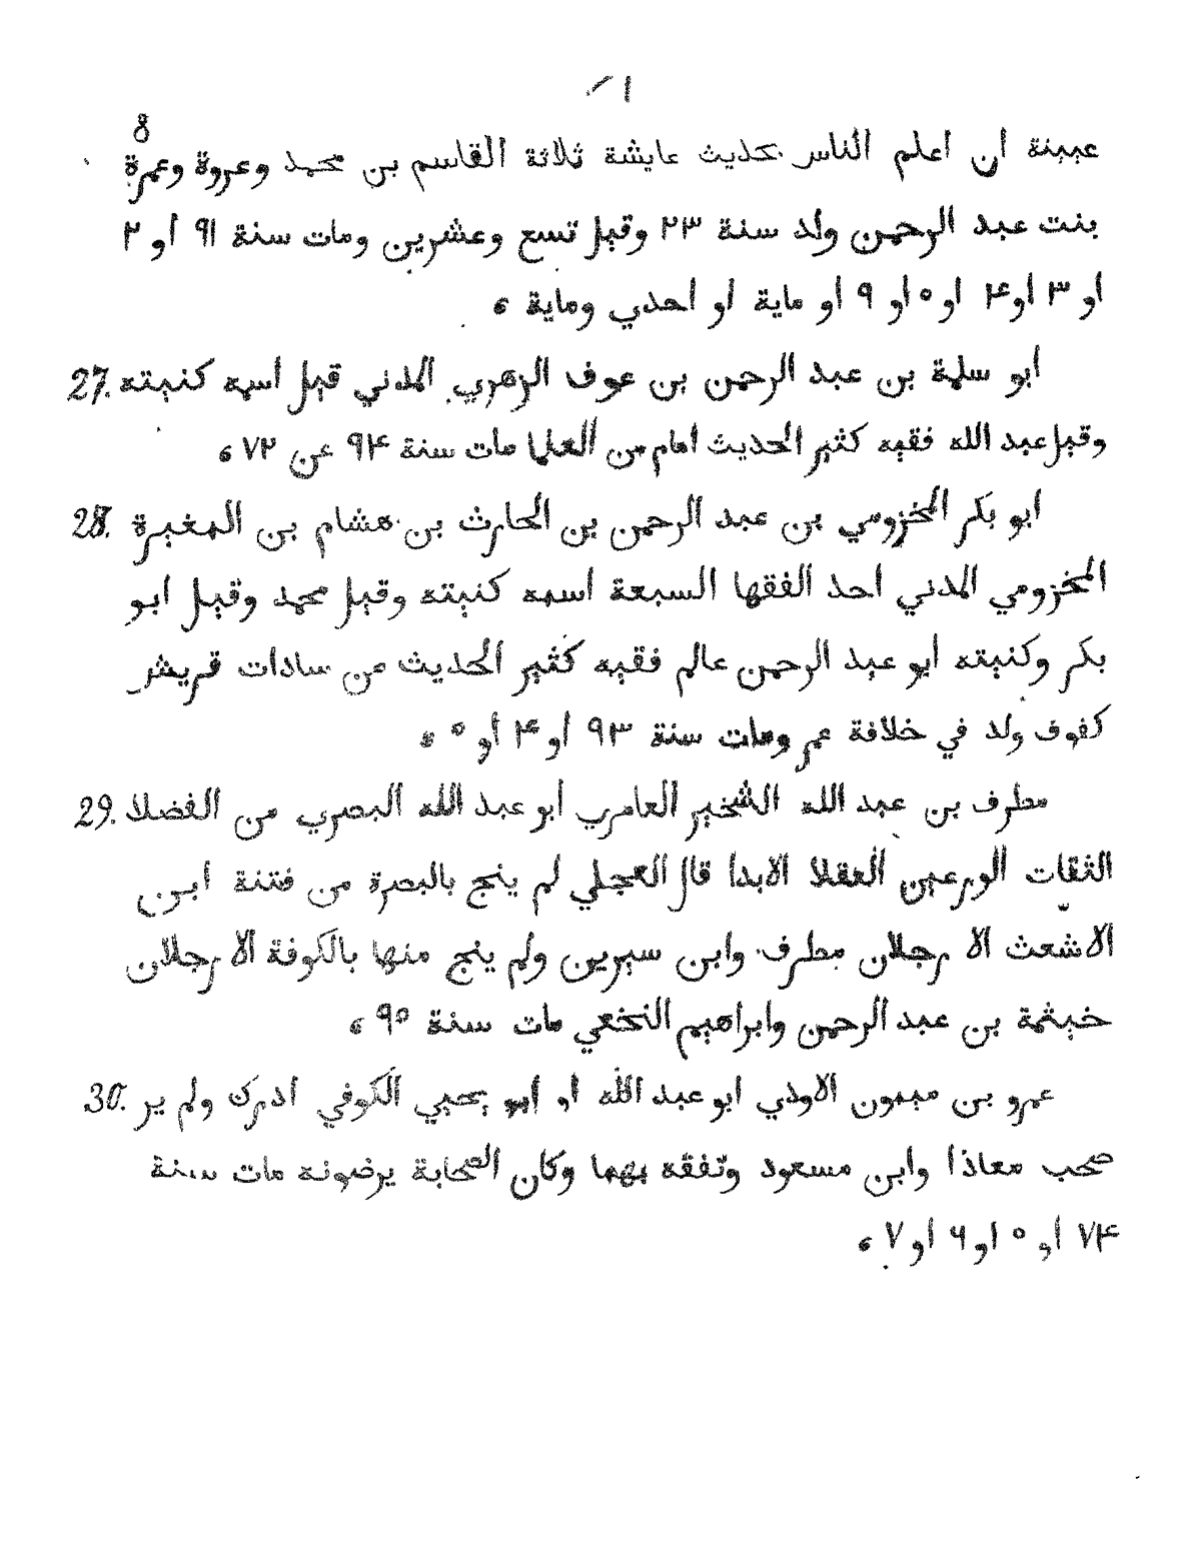 ٨
عيينة ان اعلم الناس بحديث عايشة ثلاثة القاسم بن محمد وعروة وعمرة
بنت عبد الرحمن ولد سنة ٢٣ وقيل تسع وعشرين ومات سنة ٩١ او ٢
او ٣ او ۴ او ٥ او ٩ او ماية او احدي وماية ه
27. ابو سلمة بن عبد الرحمن بن عوف الزهري المدني قيل اسمه كنيته
وقيل عبد الله فقيه كثير الحديث امام من العلما مات سنة ٩۴ عن ٧٢ ه
28. ابو بكر المخزومي بن عبد الرحمن بن الحارث بن هشام بن المغيرة
المخزومي المدني احد الفقها السبعة اسمه كنيته وقيل محمد وقيل ابو
بكر وكنيته ابو عبد الرحمن عالم فقيه كثير الحديث من سادات قريش
كفوف ولد في خلافة عمر ومات سنة ٩٣ او ۴ او ٥ ه
29. مطرف بن عبد الله الشخير العامري ابو عبد الله البصري من الفضلا
الثقات الورعين العقلا الابدا قال العجلي لم ينج بالبصرة من فتنة ابن
الاشعث الا رجلان مطرف وابن سيرين ولم ينج منها بالكوفة الا رجلان
خيثمة بن عبد الرحمن وابراهيم النخعي مات سنة ٩٥ ه
30. عمرو بن ميمون الاودي ابو عبد الله او ابو يحيي الكوفي ادرك ولم ير
صحب معاذا وابن مسعود وتفقه بهما وكان الصحابة يرضونه مات سنة
٧۴ او ٥ او ٦ او ٧ ه